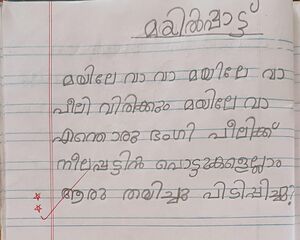 മയിൽപ്പാട്ട്
മയിലേ വാ വാ മയിലേ വാ
പീലി വിരിക്കും മയിലേ വാ
എന്തൊരു ഭംഗി പീലിക്ക്
നീലപട്ടിൻ പൊട്ടുകളെല്ലാം
ആരു തയിച്ചു പിടിപ്പിച്ചു?